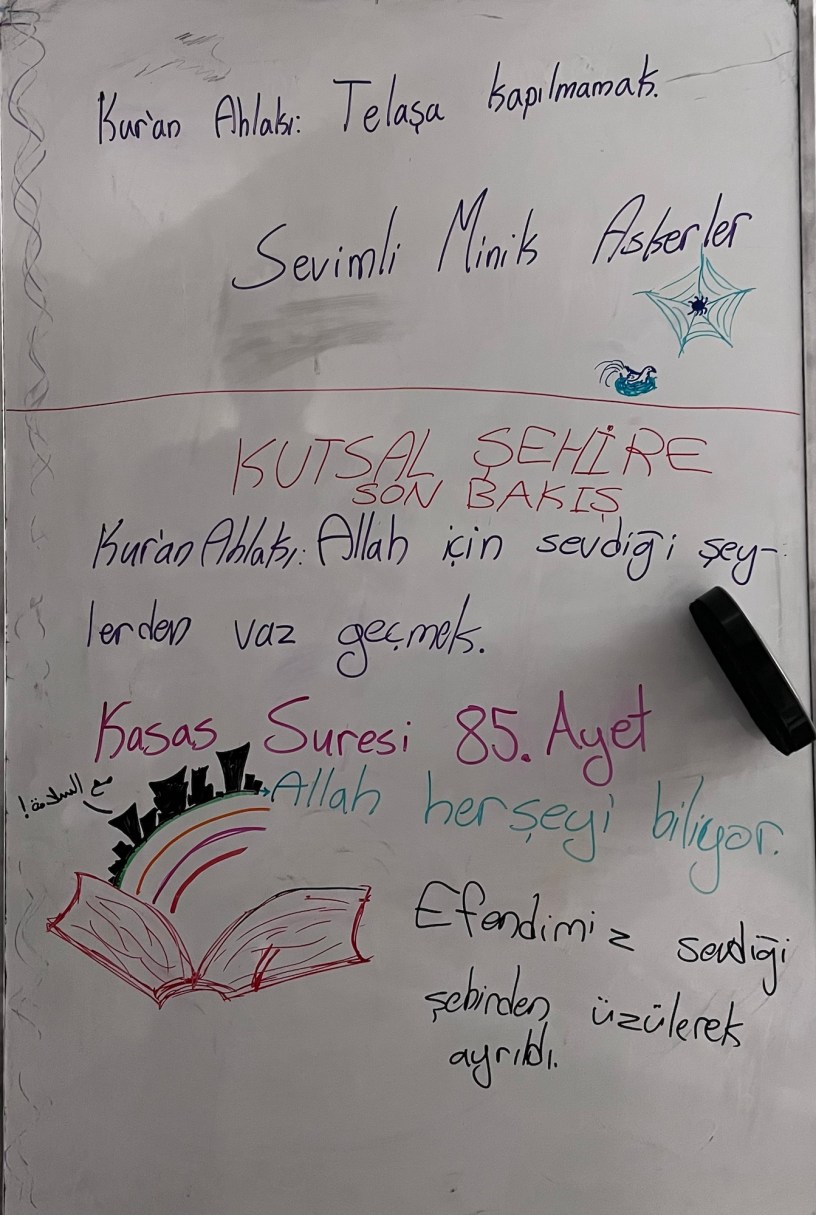 Kur'an Ahlakı: Telaşa kapılmamak.
Sevimli Minik Askerler
KUTSAL ŞEHİRE
SON BAKIŞ
Kur'an Ahlakı: Allah için sevdiği şey-
lerden vaz geçmek.
Kasas Suresi 85. Ayet
مع السلامة!
Allah herşeyi biliyor.
Efendimiz sevdiği
şehirden üzülerek
ayrıldı.